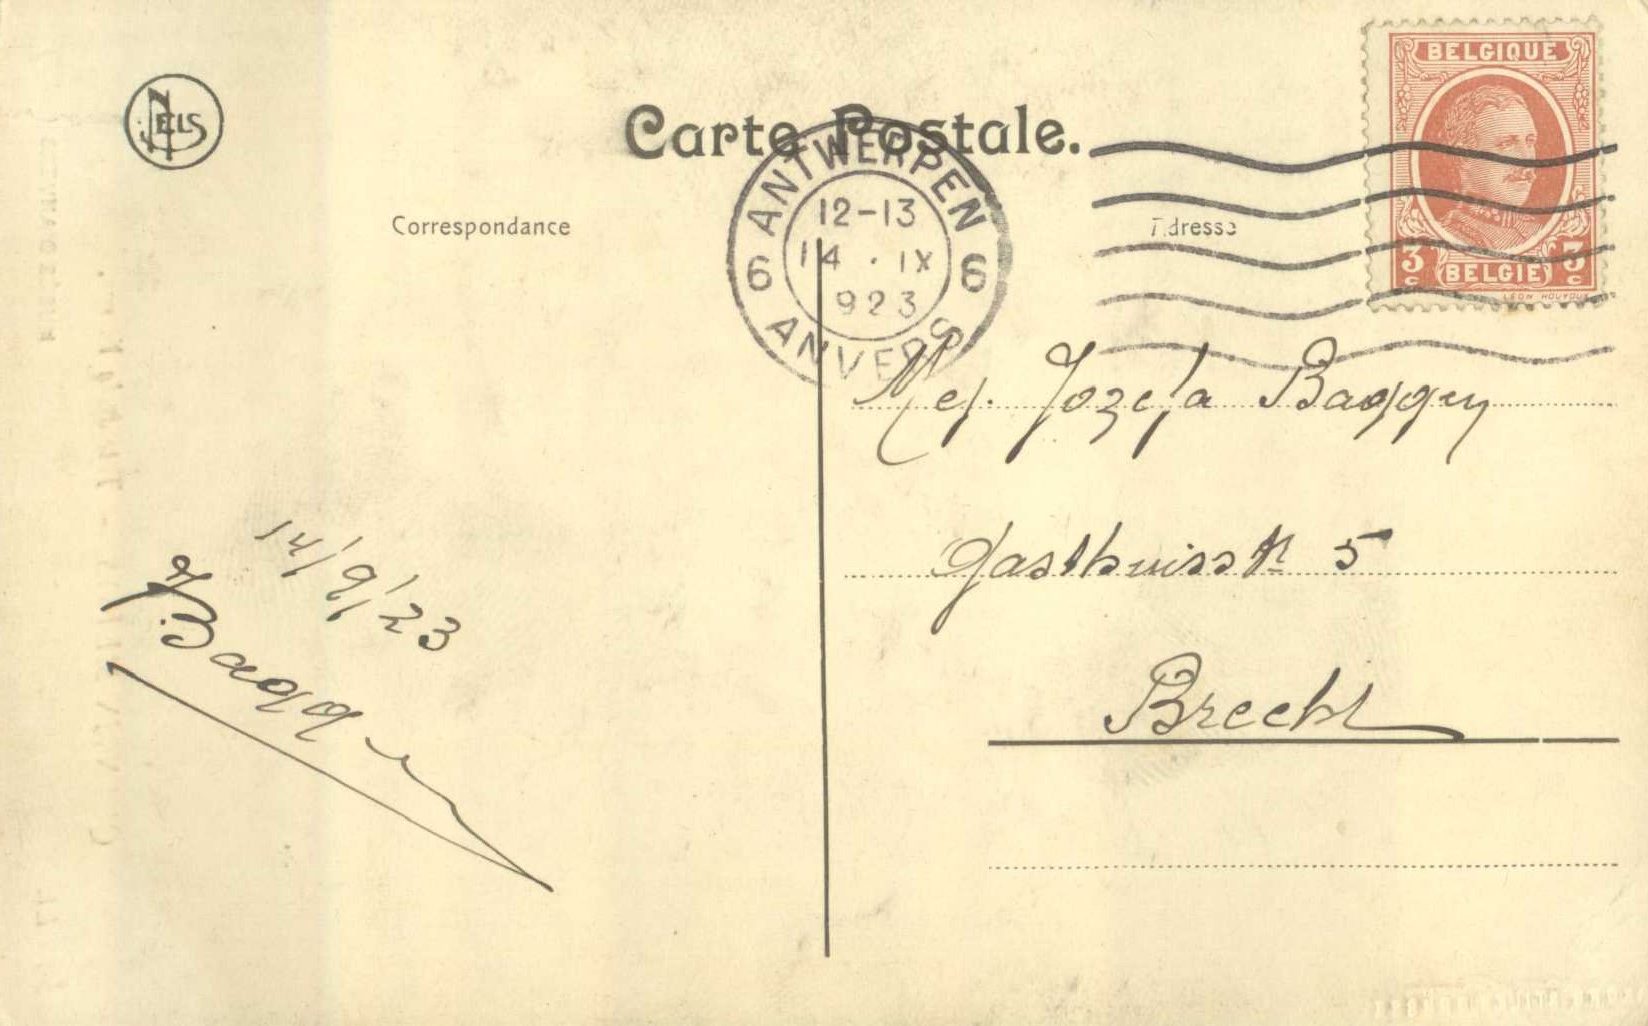 NELS
Carte Postale.
BELGIQUE
3c BELGIË 3c
LÉON HOUYOUX
ANTWERPEN
12-13
14 · IX
923
6 6
ANVERS
Correspondance
Adresse
Mej. Jozefa Baggen
Gasthuisstr 5
Brecht
14/9/23